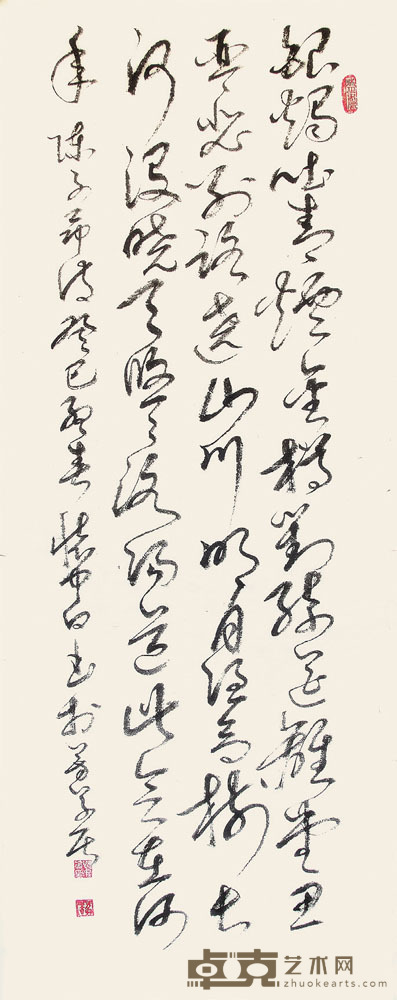 銀燭吐青煙金樽對綺筵離堂思
琴瑟別路遶山川明月隱高樹長
河沒曉天悠悠洛陽道此會在何
年 陳子昂詩癸巳孟春
卓克艺术网
zhuokearts.com